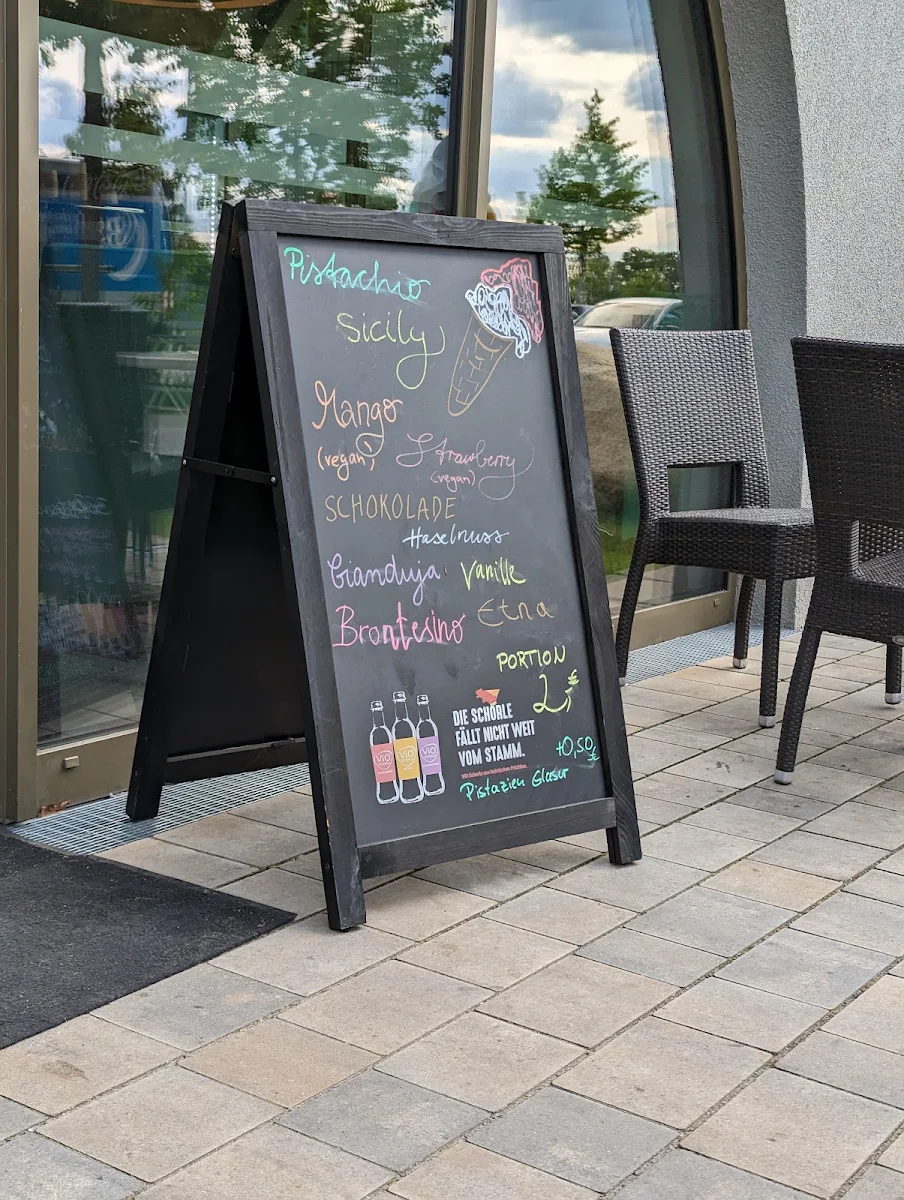 Pistachio
Sicily
Mango
(vegan)
Strawberry
(vegan)
SCHOKOLADE
Haselnuss
Gianduja
Vanille
Brontesino
Etna
PORTION
2,-€
ViO
ViO
ViO
DIE SCHORLE
FÄLLT NICHT WEIT
VOM STAMM.
+0,50€
Pistazien Glasur